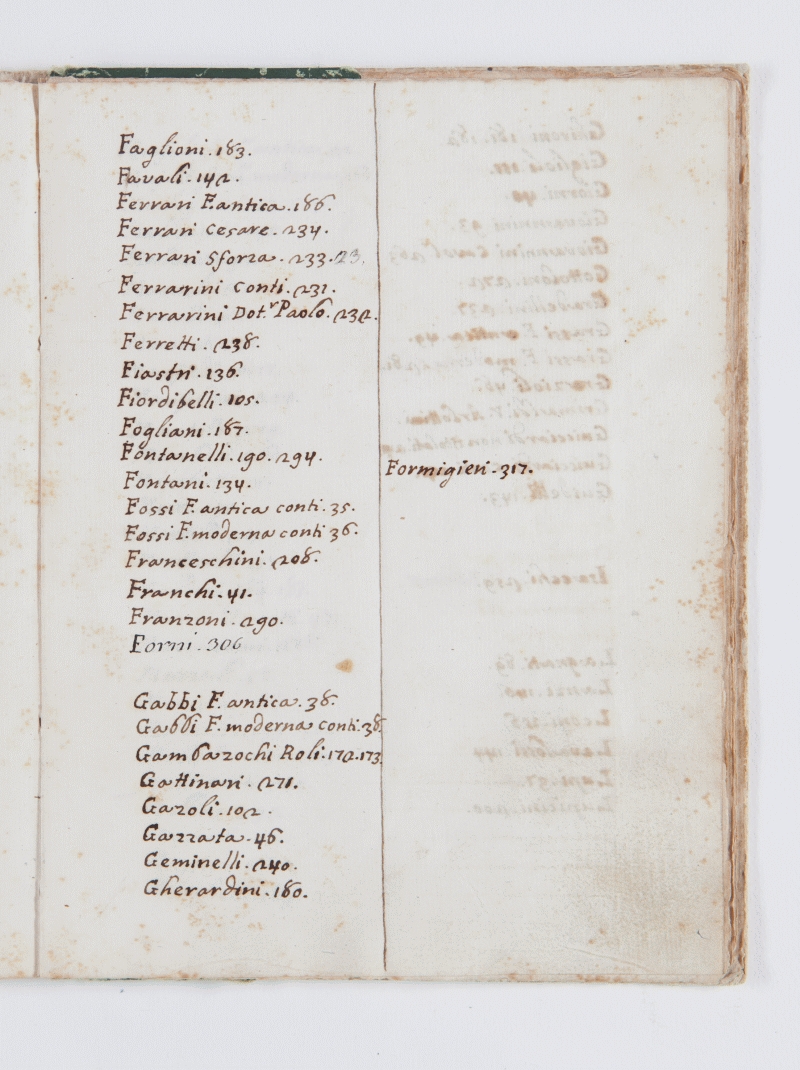 Faglioni. 183.
Favali. 142.
Ferrari F. antica. 186.
Ferrari Cesare. 234.
Ferrari Sforza. 233. 23.
Ferrarini Conti. 231.
Ferrarini Dot.r Paolo. 232.
Ferretti. 238.
Fiastri. 136.
Fiordibelli. 105.
Fogliani. 187.
Fontanelli. 190. 294.
Formigieri. 317.
Fontani. 134.
Fossi F. antica conti. 35.
Fossi F. moderna conti 36.
Franceschini. 208.
Franchi. 41.
Franzoni. 290.
Forni. 306
Gabbi F. antica. 38.
Gabbi F. moderna conti. 38.
Gambarochi Roli. 172. 173
Gattinari. 271.
Gazoli. 102.
Gazzata. 46.
Geminelli. 240.
Gherardini. 180.